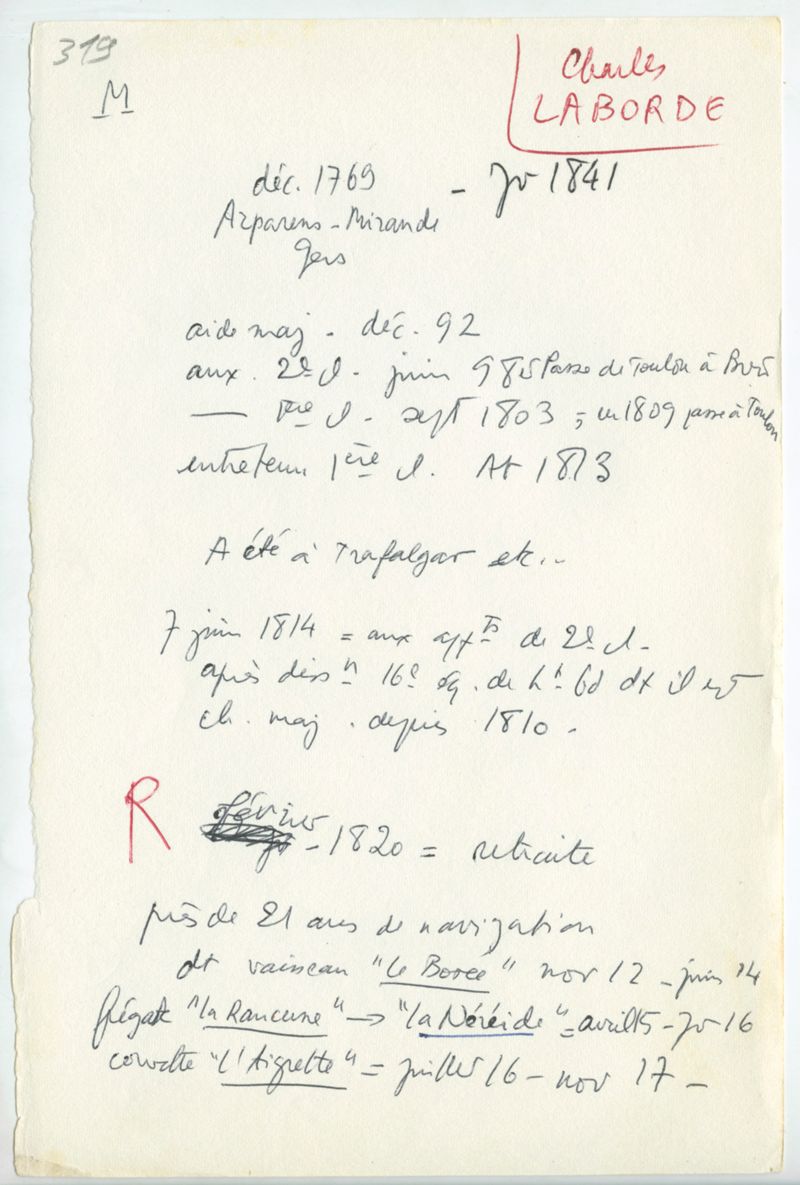 319
M
Charles
LABORDE
déc. 1769 - Jr 1841
Azparens - Mirande
Gers
aide maj - déc. 92
aux. 2e cl - juin 98 et Passe de Toulon à Brest
— 1ère cl - sept 1803 ; en 1809 passe à Toulon
entretenu 1ère cl. At 1813
A été à Trafalgar etc...
7 juin 1814 = aux appts de 2e cl -
après dissn 16e éq. de ht bd dt il est
ch. maj. depuis 1810 -
R février - 1820 = retraite
près de 21 ans de navigation
dt vaisseau "le Borée" nov 12 - juin 14
frégate "la Rancune" → "la Néréide" = avril 15 - Jr 16
corvette "l'Aigrette" = juillet 16 - nov 17 -